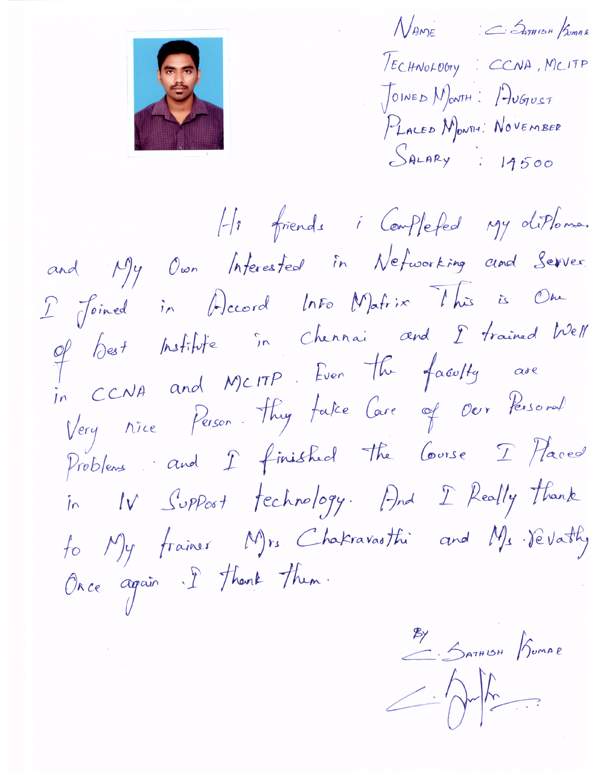 NAME : C. SATHISH KUMAR
TECHNOLOGY : CCNA, MCITP
JOINED MONTH : AUGUST
PLACED MONTH : NOVEMBER
SALARY : 14500
Hi friends i Completed my diploma.
and My Own Interested in Networking and Server
I Joined in Accord Info Matrix This is One
of best Institute in Chennai and I trained Well
in CCNA and MCITP. Even the faculty are
Very nice Person. they take Care of our Personal
Problems. and I finished the Course I Placed
in IV Support technology. And I Really thank
to My trainer Mrs Chakravarthi and Ms. revathy
Once again. I thank them.
BY
C. SATHISH KUMAR